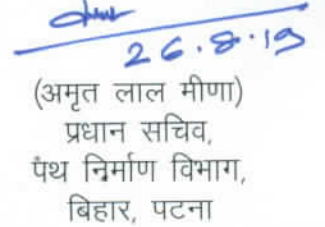 26.8.19
(अमृत लाल मीणा)
प्रधान सचिव,
पथ निर्माण विभाग,
बिहार, पटना